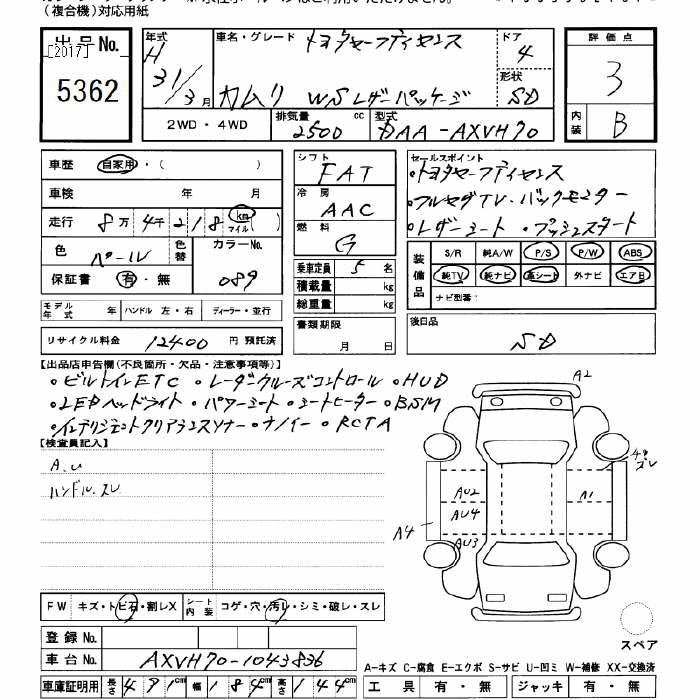 (複合機)対応用紙
出品No.
[2017]
5362
年式 H 31/3月
車名・グレード トヨタセーフティセンス
カムリ WSレザーパッケージ
ドア 4
形状 SD
2WD・4WD
排気量 2500 cc
型式 DAA-AXVH70
評価点
3
内装 B
車歴 自家用・( )
車検 年 月
走行 8万4千218 km マイル( )
色 パール 色替 カラーNo. 089
保証書 有・無
シフト FAT
冷房 AAC
燃料 G
乗車定員 5名
積載量 kg
総重量 kg
書類期限
月 日
セールスポイント
・トヨタセーフティセンス
・フルセグTV・バックモニター
・レザーシート・プッシュスタート
装備品 S/R 純A/W P/S P/W ABS
純TV 純ナビ 革シート 外ナビ エアB
ナビ型番:
モデル年式 年 ハンドル 左・右 ディーラー・並行
リサイクル料金 12400 円 預託済
後日品
SD
【出品店申告欄(不良箇所・欠品・注意事項等)】
・ビルトインETC ・レーダークルーズコントロール ・HUD
・LEDヘッドライト ・パワーシート ・シートヒーター ・BSM
・インテリジェントクリアランスソナー ・ナノイー ・RCTA
【検査員記入】
A.U
ハンドル.スレ
A2
スレ
AU2
A1
AU4
A4
AU3
FW キズ・トビ石・割レX シート内装 コゲ・穴・汚レ・シミ・破レ・スレ
スペア
登録No.
車台No. AXVH70-1043836
A-キズ C-腐食 E-エクボ S-サビ U-凹ミ W-補修 XX-交換済
車庫証明用 長さ 491cm 幅 184cm 高さ 144cm
工具 有・無 ジャッキ 有・無